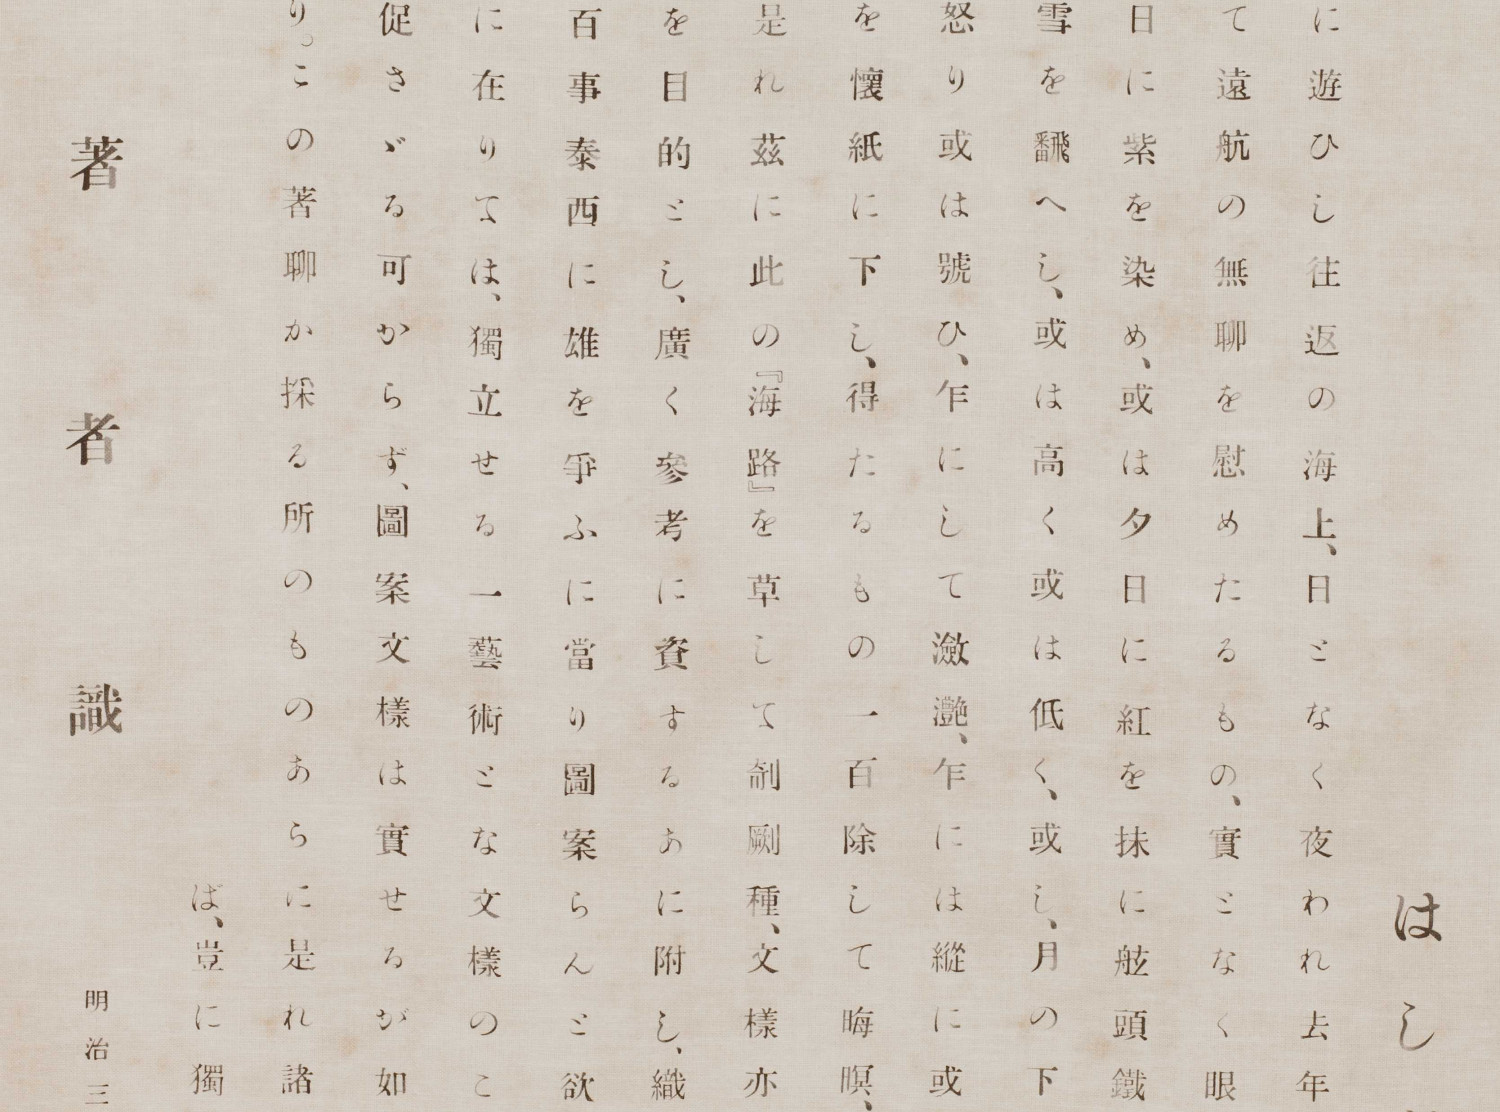 はし
に遊ひし往返の海上、日となく夜われ去年
て遠航の無聊を慰めたるもの、實となく眼
日に紫を染め、或は夕日に紅を抹に舷頭鐵
雪を飜へし、或は高く或は低く、或し、月の下
怒り或は號ひ、乍にして瀲灔、乍には縱に或
を懷紙に下し、得たるもの一百除して晦暝、
是れ茲に此の『海路』を草して剞劂種、文樣亦
を目的とし、廣く參考に資するあに附し、織
百事泰西に雄を爭ふに當り圖案らんと欲
に在りては、獨立せる一藝術とな文樣のこ
促さゞる可からず、圖案文樣は實せるが如
り。この著聊か採る所のものあらに是れ諸
ば、豈に獨
著者識
明治三